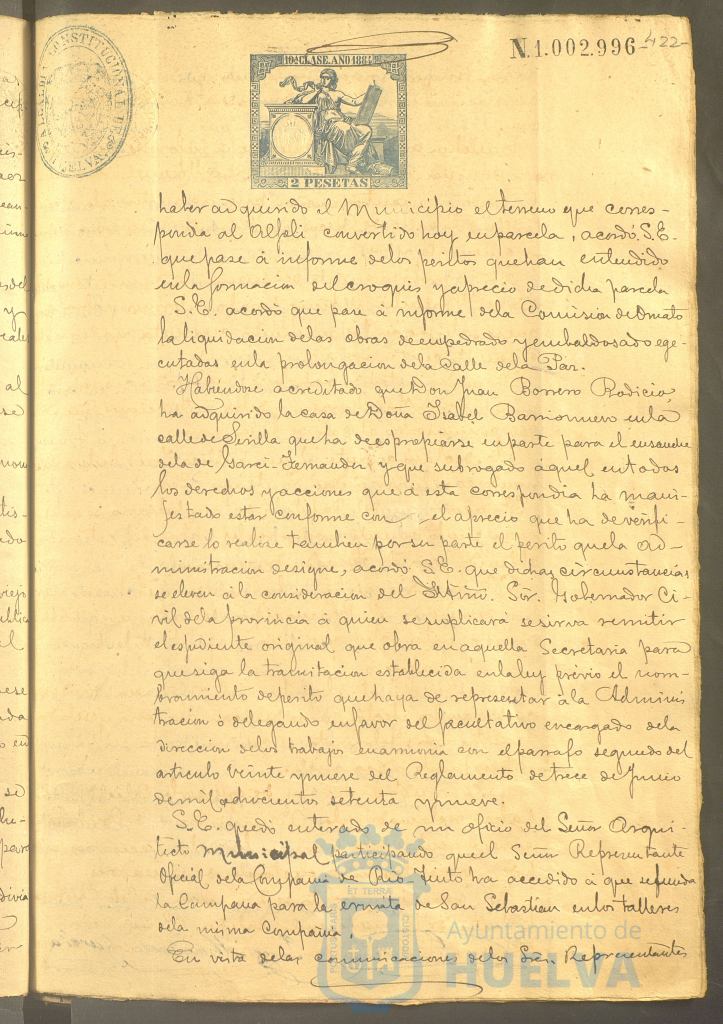 N.1.002.996
422
10ª CLASE. AÑO 188
2 PESETAS
haber adquirido el Municipio el terreno que corres-
pondia al Alfoli convertido hoy en parcela, acordó S.E.
que pase á informe de los peritos que han entendido
en la formacion del croquis y aprecio de dicha parcela
S.E. acordó que pase á informe de la Comision de Ornato
la liquidacion de las obras de empedrado y embaldosado ege-
cutadas en la prolongacion de la Calle de la Paz.
Habiéndose acreditado que Don Juan Borrero Rodicio,
ha adquirido la casa de Doña Isabel Barrionuevo en la
calle de Sevilla que ha de espropiarse en parte para el ensanche
de la de Garci-Fernandez y que subrogado á aquel en todos
los derechos y acciones que á esta correspondia ha mani-
festado estar conforme con el aprecio que ha de verifi-
carse lo realize tambien por su parte el perito que la ad-
ministracion designe, acordó S.E. que dichas circunstancias
se eleven á la consideracion del Iltmo. Sor. Gobernador Ci-
vil de la provincia á quien se suplicará se sirva remitir
el espediente original que obra en aquella Secretaria para
que siga la tramitacion establecida en la ley previo el nom-
bramiento de perito que haya de representar á la Adminis
tracion ó delegando en favor del facultativo encargado de la
direccion de los trabajos en armonia con el parrafo segundo del
articulo veinte y nueve del Reglamento de trece de Junio
de mil ochocientos setenta y nueve.
S.E. quedó enterado de un oficio del Señor Arqui-
tecto Municipal participando que el Señor Representante
Oficial de la Compañia de Rio Tinto ha accedido á que se funda
la Campana para la ermita de San Sebastian en los talleres
de la misma Compañia.
En vista de las comunicaciones de los Sres. Representantes
Ayuntamiento de
HUELVA